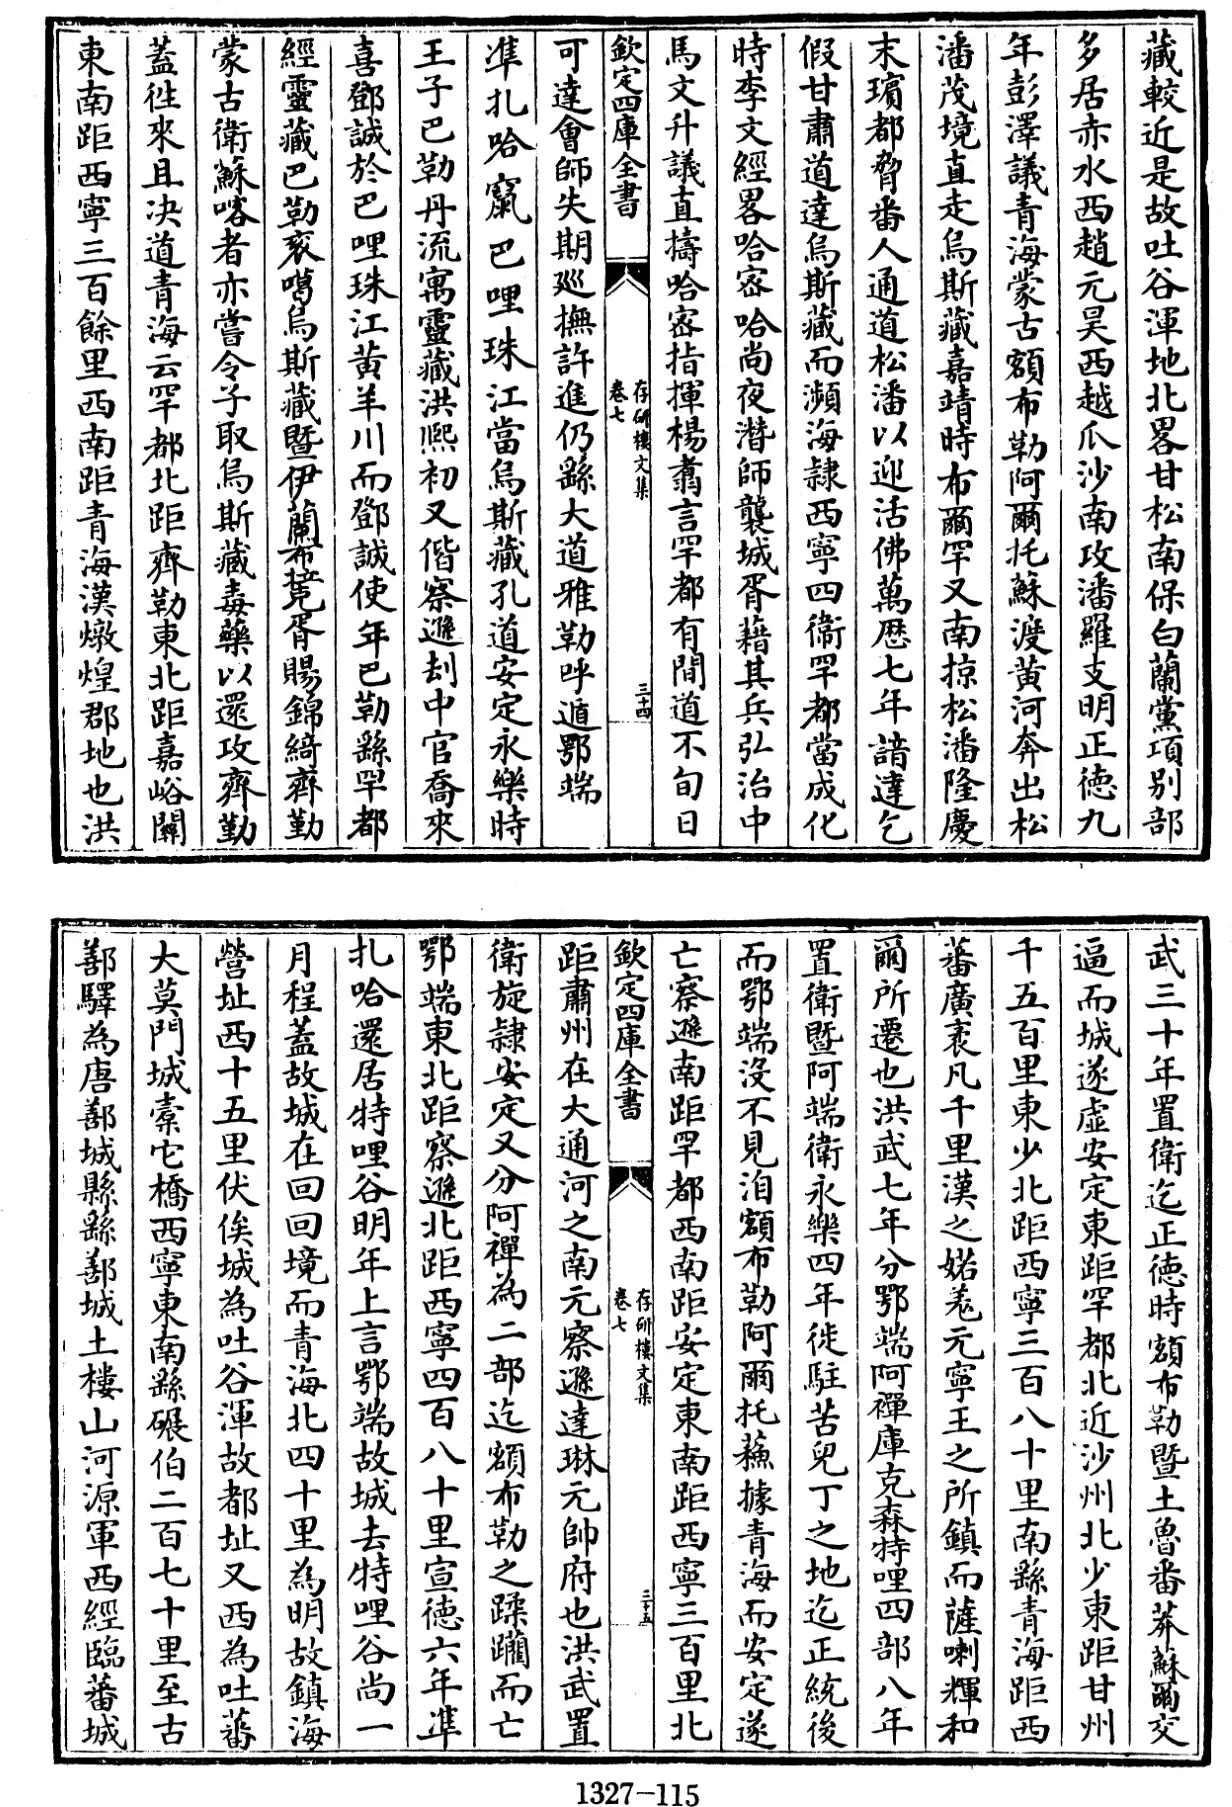 藏較近是故吐谷渾地北畧甘松南保白蘭黨項别部
多居赤水西趙元昊西越瓜沙南攻潘羅支明正德九
年彭澤議青海蒙古額布勒阿爾托蘇渡黄河奔出松
潘茂境直走烏斯藏嘉靖時布爾罕又南掠松潘隆慶
末瓆都脅番人通道松潘以迎活佛萬厯七年諳達乞
假甘肅道達烏斯藏而瀕海隷西寧四衞罕都當成化
時李文經畧哈密哈尚夜潛師襲城胥藉其兵弘治中
馬文升議直擣哈密指揮楊翥言罕都有間道不旬日
欽定四庫全書
存研樓文集
卷七
三十四
可達會師失期廵撫許進仍繇大道雅勒呼遁鄂端
準扎哈窵巴哩珠江當烏斯藏孔道安定永樂時
王子巴勒丹流寓靈藏洪熙初又偕察遜刦中官喬來
喜鄧誠於巴哩珠江黄羊川而鄧誠使年巴勒繇罕都
經靈藏巴勒衮噶烏斯藏暨伊蘭布竟胥賜錦綺齊勤
蒙古衛蘇喀者亦嘗令子取烏斯藏毒藥以還攻齊勤
蓋徃來且决道青海云罕都北距齊勒東北距嘉峪關
東南距西寧三百餘里西南距青海漢燉煌郡地也洪
武三十年置衛迄正德時額布勒暨土魯番莽蘇爾交
逼而城遂虛安定東距罕都北近沙州北少東距甘州
千五百里東少北距西寧三百八十里南繇青海距西
蕃廣袤凡千里漢之婼羌元寧王之所鎮而薩喇輝和
爾所遷也洪武七年分鄂端阿禪庫克森特哩四部八年
置衛暨阿端衛永樂四年徙駐苦兒丁之地迄正統後
而鄂端沒不見洎額布勒阿爾托蘇據青海而安定遂
亡察遜南距罕都西南距安定東南距西寧三百里北
欽定四庫全書
存研樓文集
卷七
三十五
距肅州在大通河之南元察遜達琳元帥府也洪武置
衛旋隷安定又分阿禪為二部迄額布勒之蹂躪而亡
鄂端東北距察遜北距西寧四百八十里宣德六年準
扎哈還居特哩谷明年上言鄂端故城去特哩谷尚一
月程蓋故城在回回境而青海北四十里為明故鎮海
營址西十五里伏俟城為吐谷渾故都址又西為吐蕃
大莫門城橐它橋西寧東南繇碾伯二百七十里至古
鄯驛為唐鄯城縣繇鄯城土樓山河源軍西經臨蕃城
1327-115